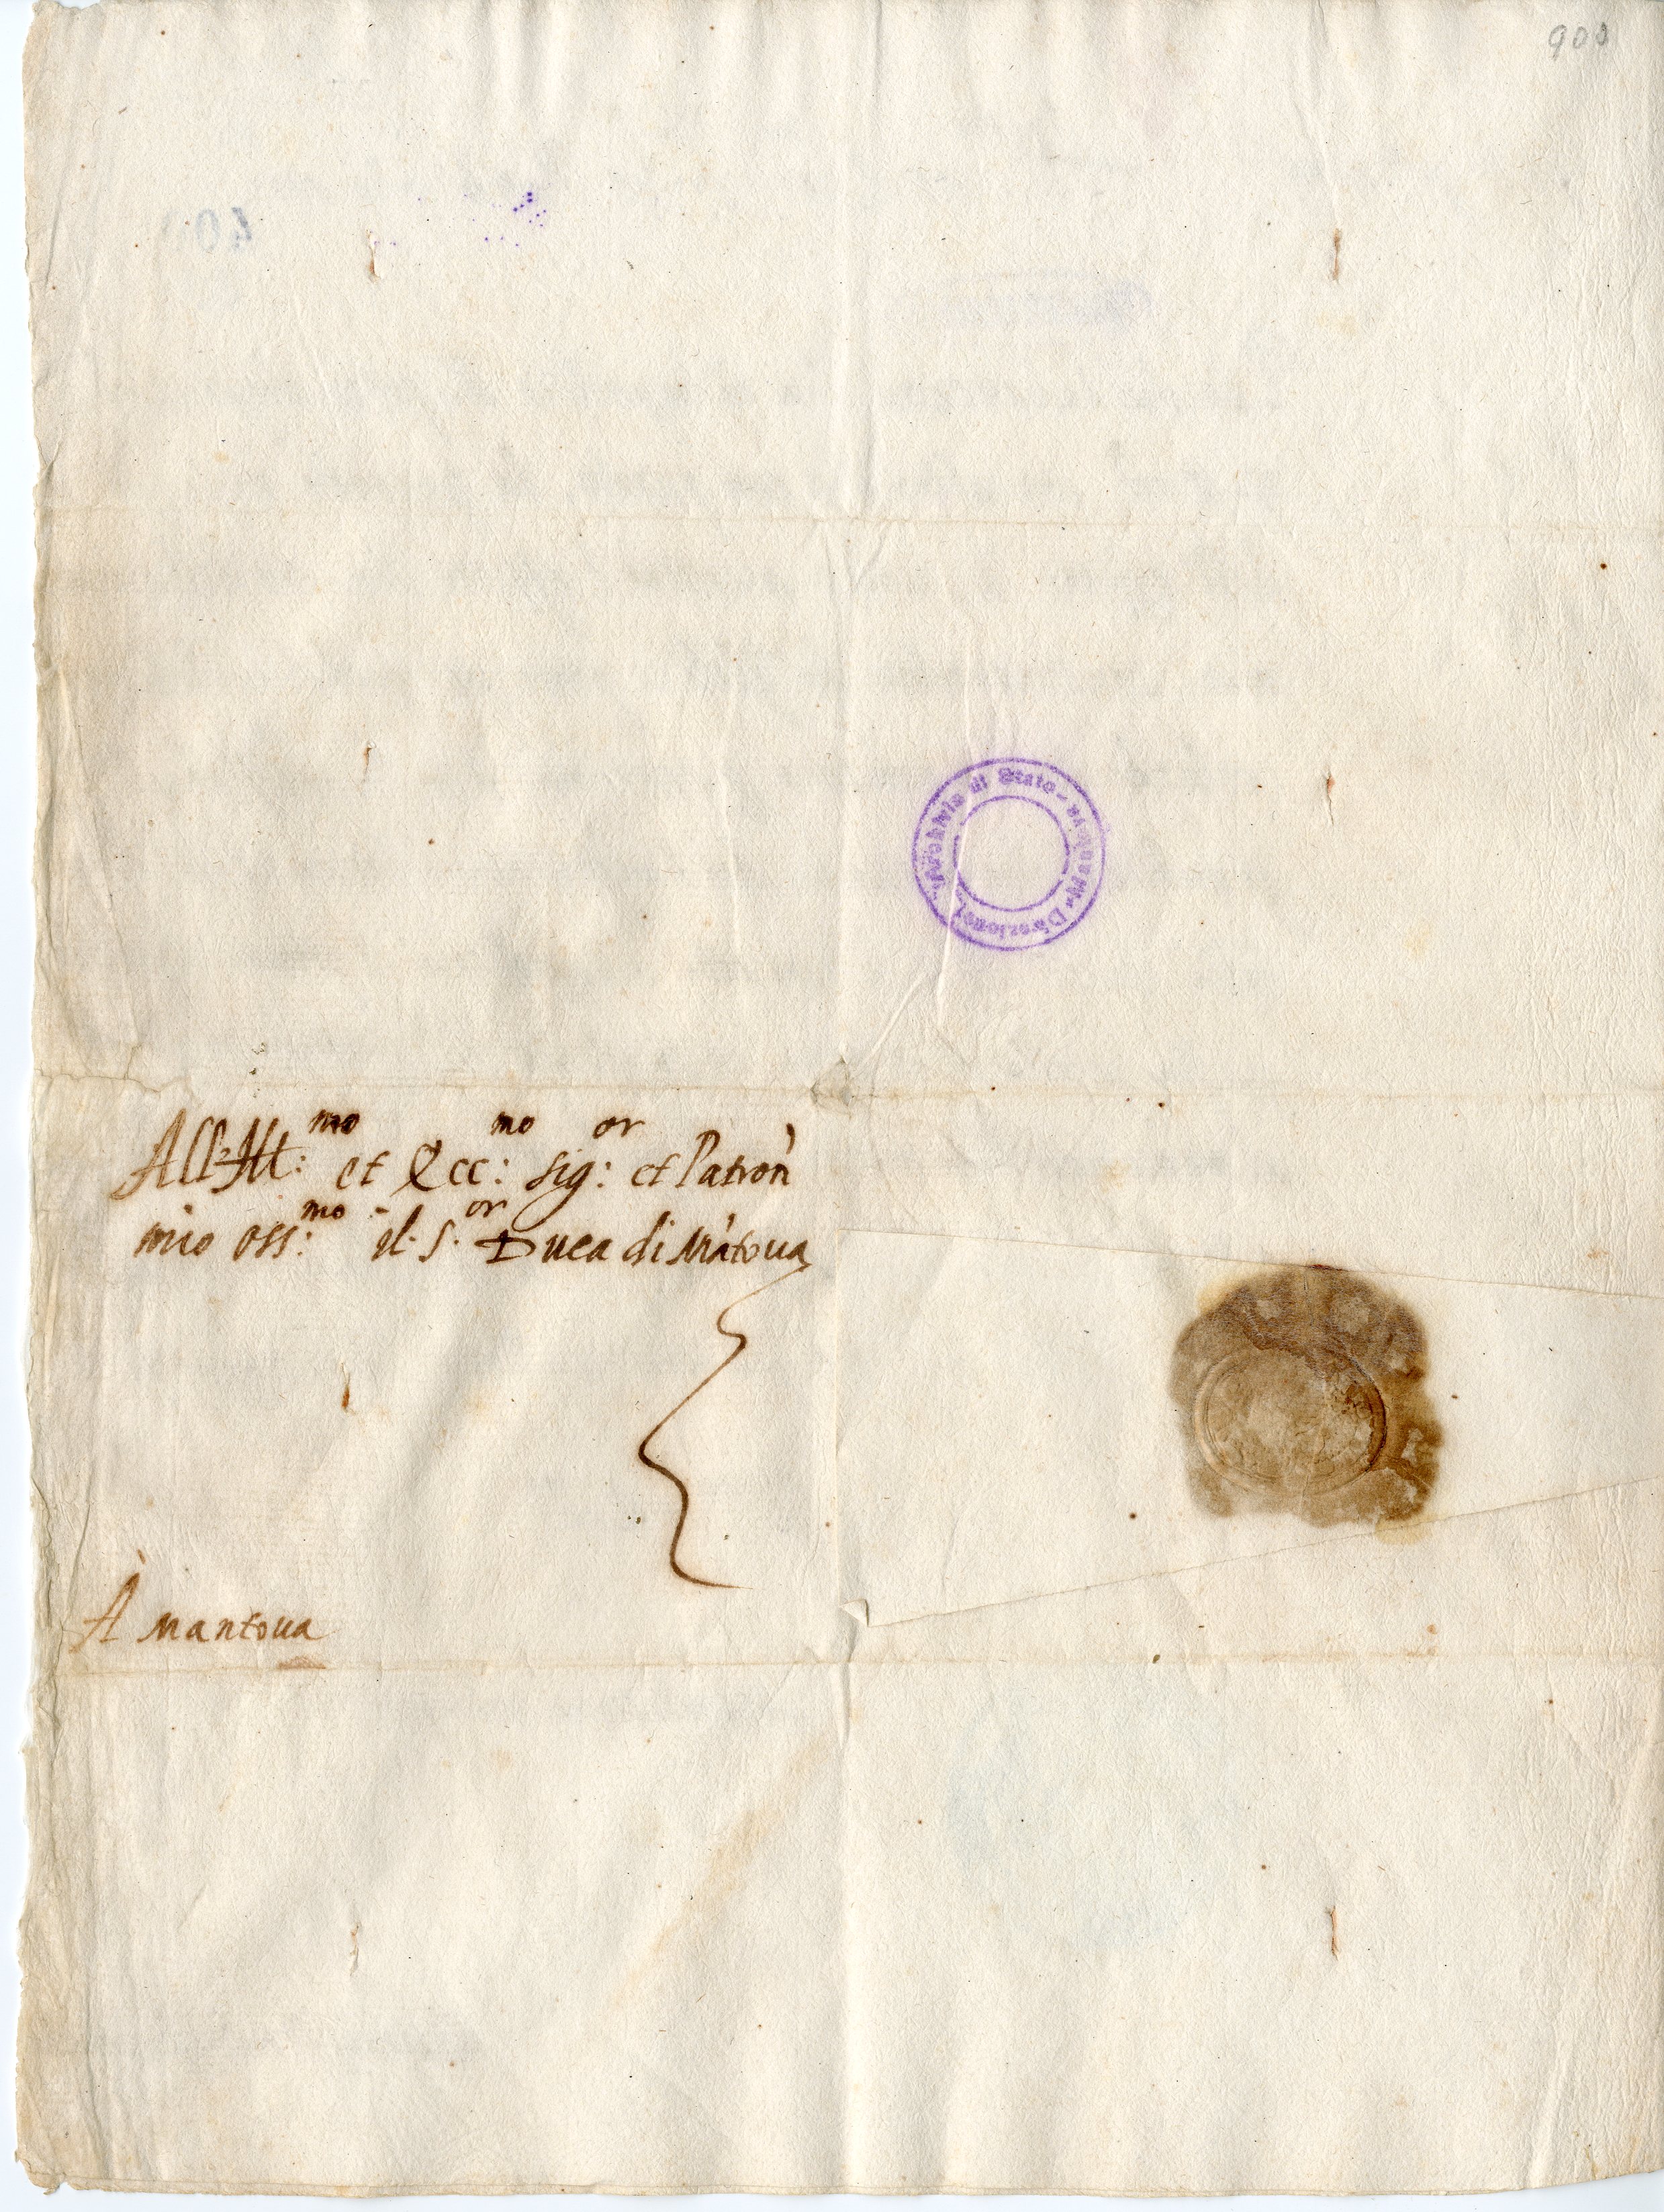 900
40
Archivio di Stato - Mantova - Direzione
All'Ill:mo et Ecc:mo sig:or et Patron
mio oss:mo il S.or Duca di Mãtoua
A Mantoua